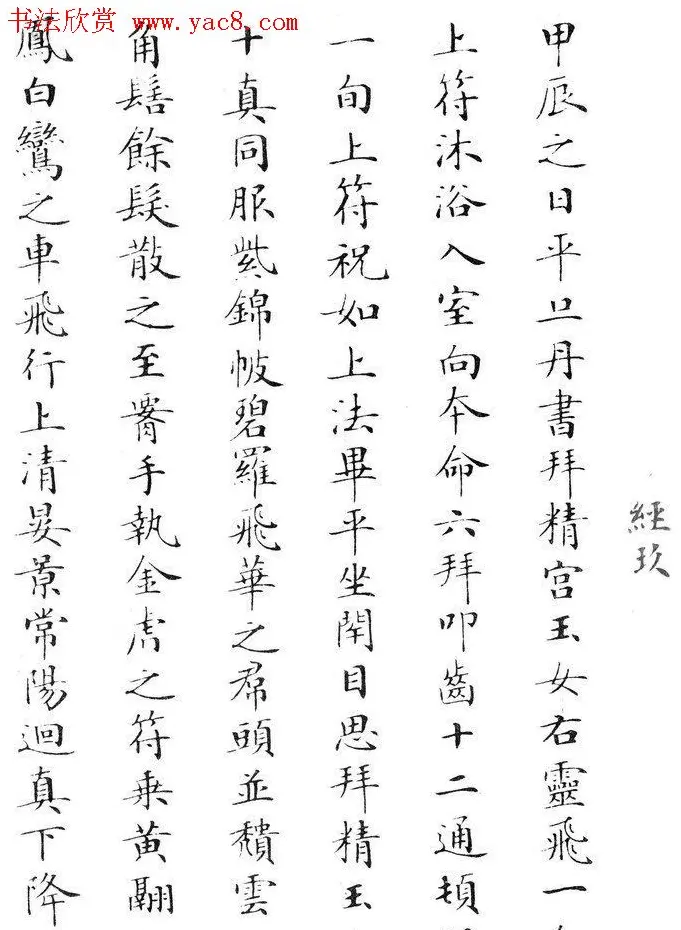 书法欣赏 www.yac8.com
經玖
甲辰之日平旦丹書拜精宮玉女右靈飛一
上符沐浴入室向本命六拜叩齒十二通頓
一旬上符祝如上法畢平坐閉目思拜精玉
十真同服紫錦帔碧羅飛華之帬頭並頹雲
角髻餘髮散之至腰手執金虎之符乘黃翮
鳳白鸞之車飛行上清晏景常陽迴真下降